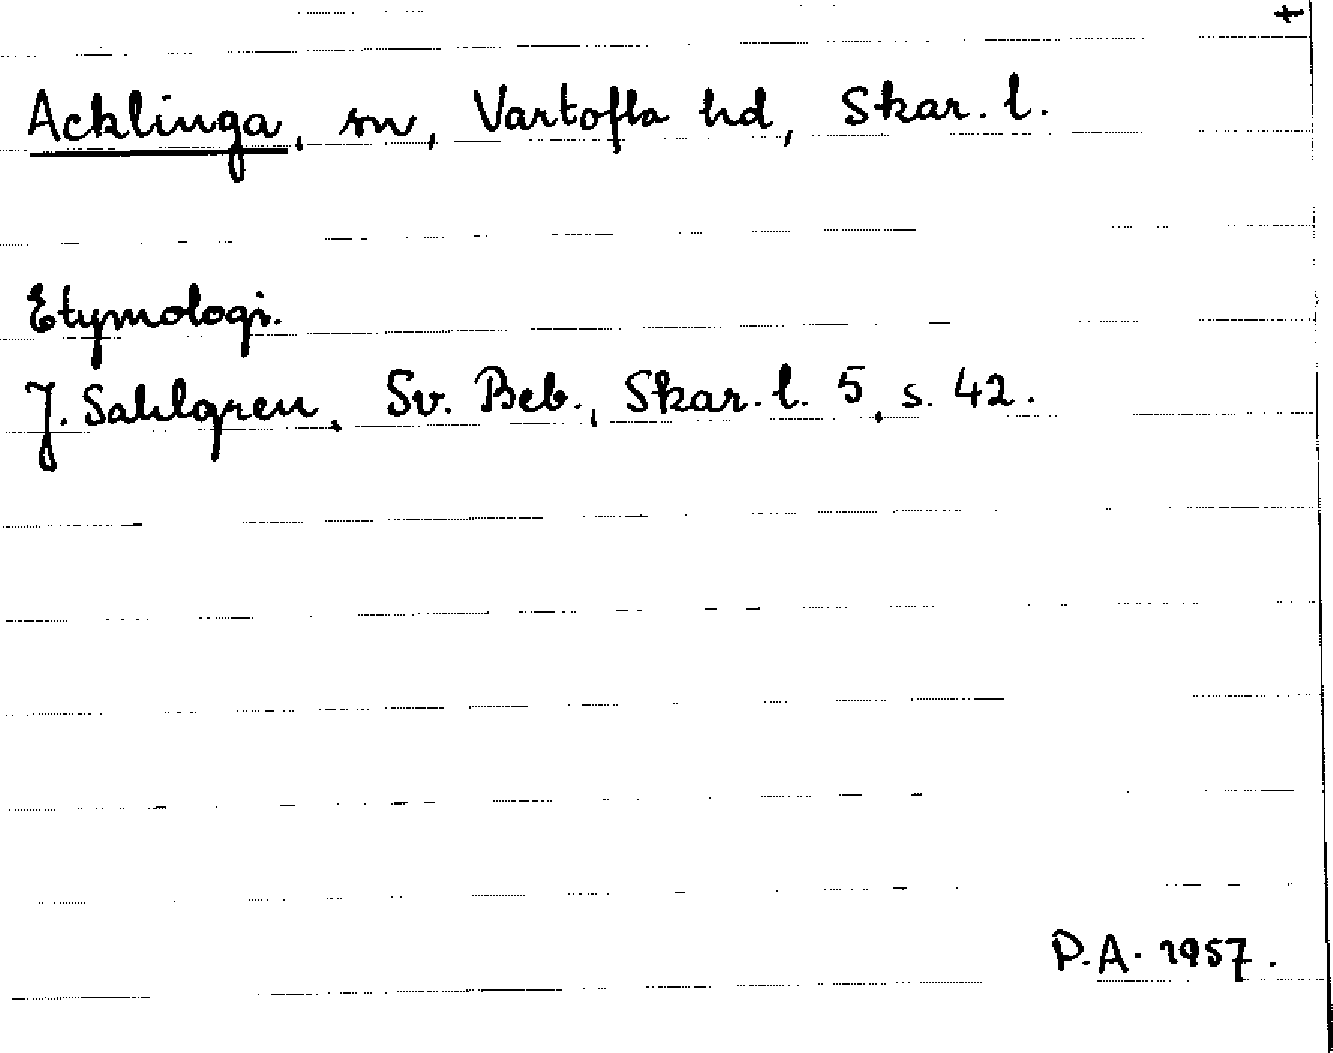 +
Acklinga, sn, Vartofta hd, Skar. l.
Etymologi.
J. Sahlgren, Sv. Beb., Skar. l. 5, s. 42.
P.A. 1957.